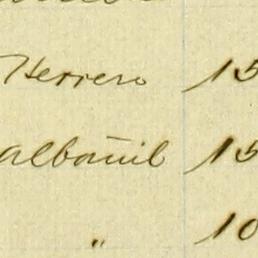 Herrero 15
albañil 15
" 10